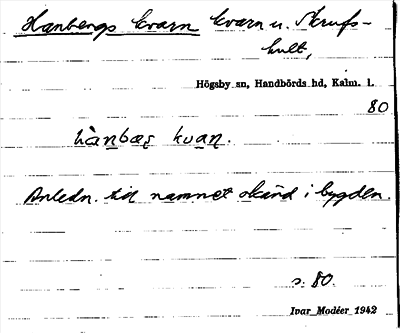 Hanbergs kvarn kvarn u. Skrufs-
hult,
Högsby sn, Handbörds hd, Kalm. l.
80
hànbæȿ kvaṇ.
Anledn. till namnet okänd i bygden.
s. 80.
Ivar Modéer 1942